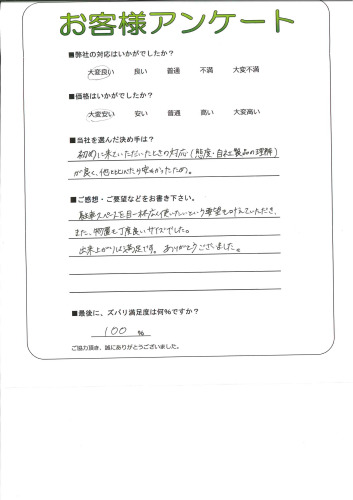 お客様アンケート
■弊社の対応はいかがでしたか？
大変良い 良い 普通 不満 大変不満
■価格はいかがでしたか？
大変安い 安い 普通 高い 大変高い
■当社を選んだ決め手は？
初めに来ていただいたときの対応(態度・自社製品の理解)
が良く、他と比べたら安かったため。
■ご感想・ご要望などをお書き下さい。
駐車スペースを目一杯広く使いたいという要望も叶えていただき、
また、物置も丁度良いサイズでした。
出来上がりは満足です。ありがとうございました。
■最後に、ズバリ満足度は何%ですか？
100 %
ご協力頂き、誠にありがとうございました。